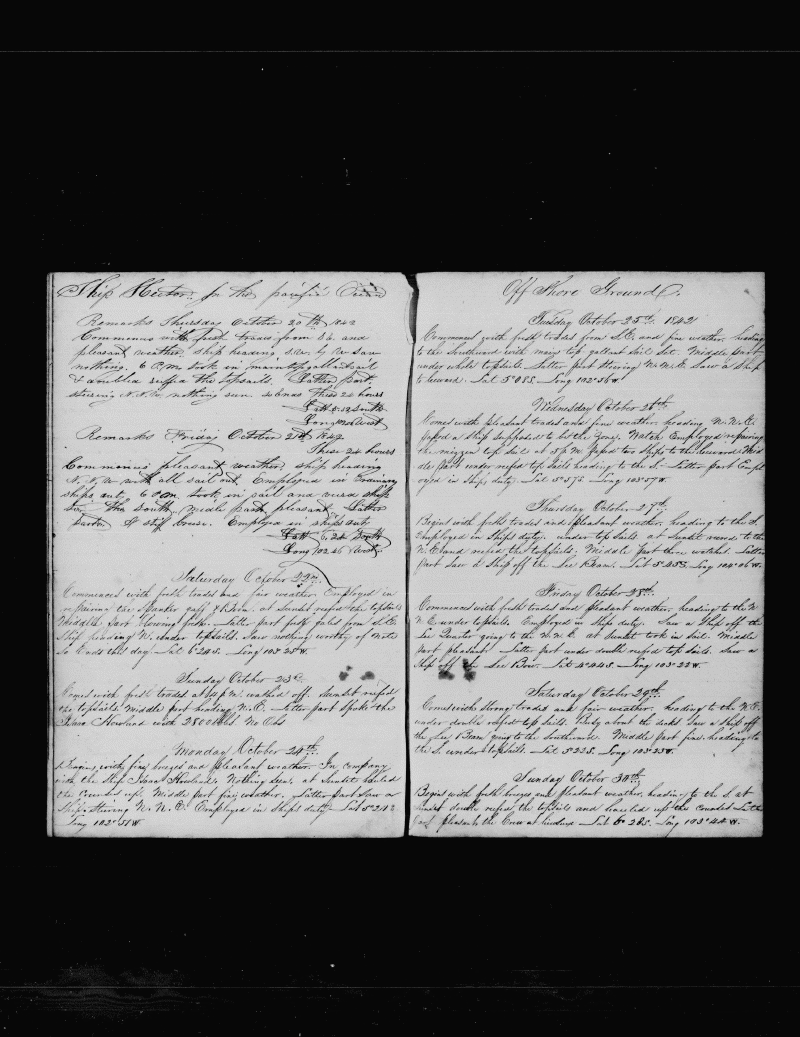 Ship Hector. In the pacific Ocean
Remarks Thursday October 20th 1842
Commences with fresh trades from S.E. and
pleasant weather, ship heading S.W. by W saw
nothing. 6 P.M. took in maintopgallantsail
& doubled reef'd the topsails. Latter part
steering N.N.W. nothing seen. So ends These 24 hours
Latt 5.12 South
Long 102 West
Remarks Friday October 21st 1842
These 24 hours
Commences pleasant weather, ship heading
N.N.W with all sail out. Employed in ordinary
ships duty, 6 P.M. took in sail and ware ship
to the South, middle part pleasant, Latter
part. Employed in ships duty
Latt 5.24 South
Long 102.26 West
Saturday October 22nd
Commences with fresh trades and fair weather. Employed in
repairing the Spanker gaff & Boom. at Sunset reefed the topsails
Middle part blowing fresh. Latter part fresh gales from S.E.
Ship heading N. under topsails. Saw nothing worthy of note
So Ends this day. Lat 5°24 S. Long 103°25 W.
Sunday October 23d
Comes with fresh trades at 4 P.M. washed off. Sunset reef'd
the topsails Middle part heading N.E. Latter part Spoke the
Isaac Howland with 2500 bbls No Obs
Monday October 24th
Begins with fine breezes and pleasant weather. In company
with the Ship Isaac Howland. Nothing seen. at Sunset hauled
the Courses up. Middle part fine weather. Latter part saw a
Ship Steering N.N.E. Employed in Ships duty Lat 5°24 S
Long 102°51 W
Off Shore Ground.
Tuesday October 25th 1842
Commences with fresh trades from S.E. and fine weather. heading
to the Southward with main top gallant Sail Set. Middle part
under whole topsails. Latter part Steering N.N.E. Saw a Ship
to leeward. Lat 5°08 S. Long 102°56 W
Wednesday October 26th
Comes with pleasant trades and fine weather, heading N.N.E.
pass'd a Ship supposed to be the Zone. Watch Employed repairing
the mizzen top sail at 5 P.M. passed two Ships to the leeward Mid
dle part under reef'd top Sails heading to the S. Latter part Empl
oyed in Ships duty. Lat 5°57 S Long 103°57 W.
Thursday October 27th
Begins with fresh trades and pleasant weather. heading to the S.
Employed in Ships duty. under top Sails. at Sunset wore to the
N.E. and reefed the topsails. Middle part three watches. Latter
part Saw a Ship off the Lee Beam. Lat 5°45 S Long 104°06 W.
Friday October 28th
Commences with fresh trades and pleasant weather. heading to the N
N.E. under topsails. Employed in Ship duty. Saw a Ship off the
Lee Quarter going to the N.N.E. at Sunset took in Sail. Middle
part pleasant. Latter part under double reef'd top Sails. Saw a
Ship off the Lee Bow. Lat 4°44 S. Long 103°22 W.
Saturday October 29th
Comes with Strong trades and fair weather. heading to the N.E.
under double reefed top Sails. Busy about the decks Saw a Ship off
the Lee Beam going to the Southward. Middle part fine. heading to
the S. under topsails. Lat 5°22 S. Long 103°35 W.
Sunday October 30th
Begins with fresh breezes and pleasant weather. heading to the S. at
Sunset double reefed the topsails and hauled up the Courses Latter
part pleasant, the Crew at leisure Lat 6°26 S. Long 103°44 W.